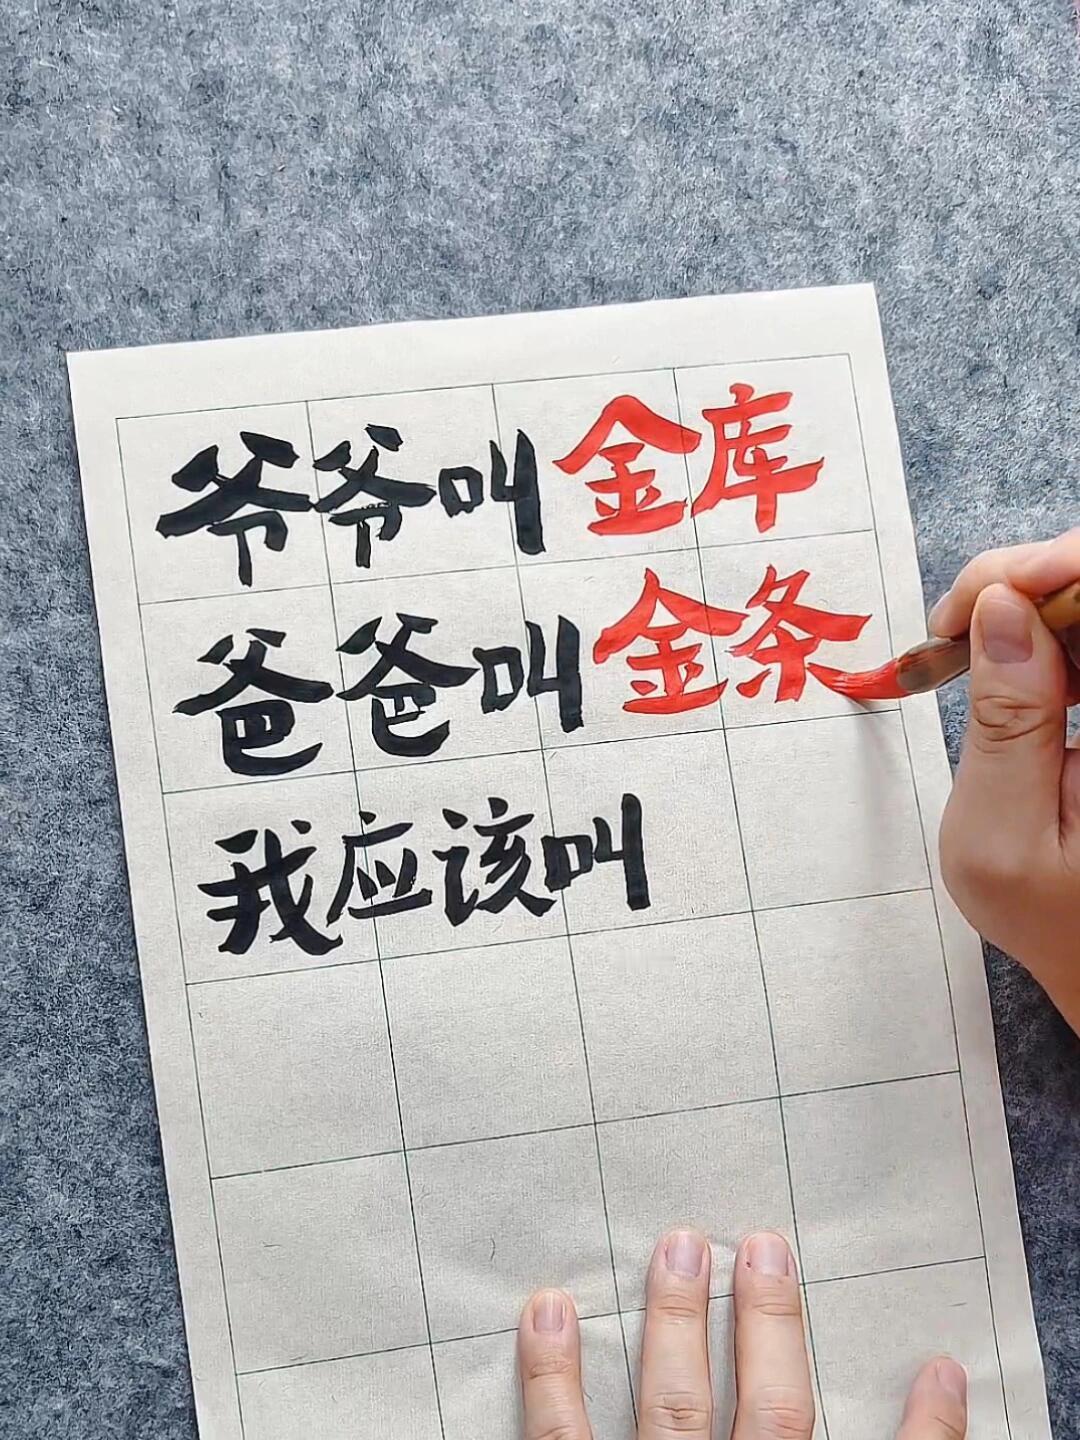 爷爷叫金库
爸爸叫金条
我应该叫